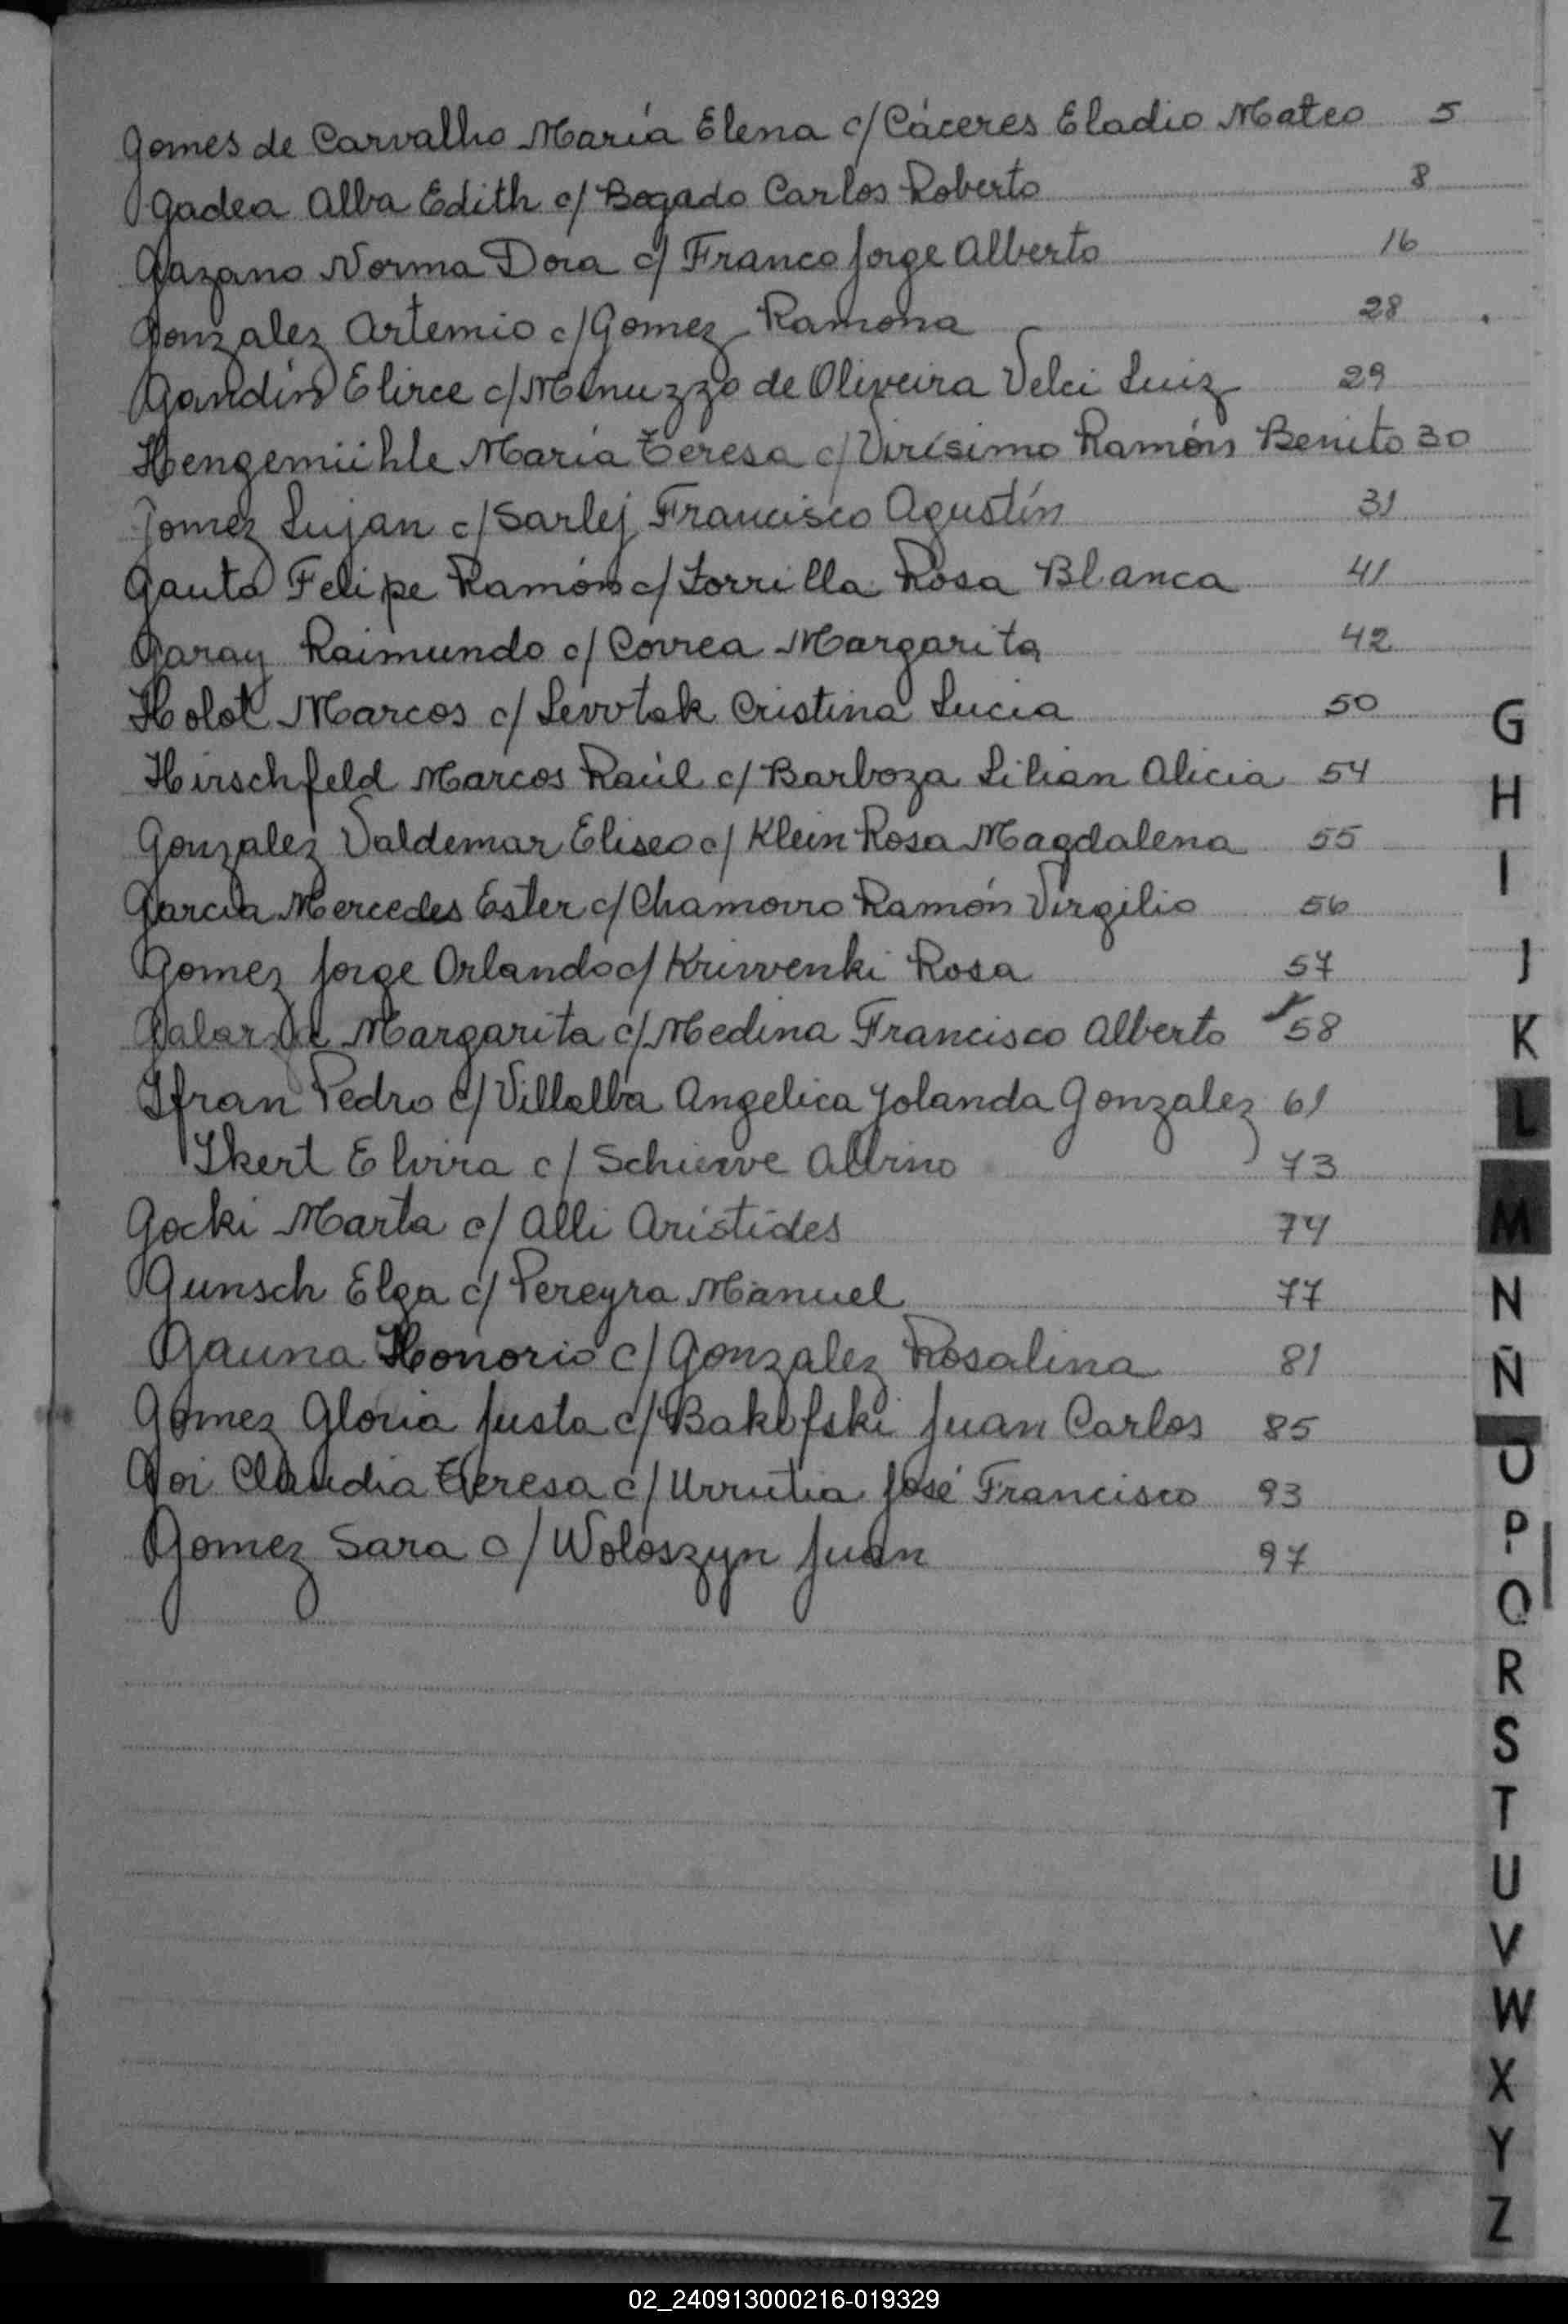 Gomes de Carvalho María Elena c/ Cáceres Eladio Mateo 5
Gadea Alba Edith c/ Bogado Carlos Roberto 8
Gazano Norma Dora c/ Franco Jorge Alberto 16
Gonzalez Artemio c/ Gomez Ramona 28
Gandín Elirce c/ Menuzzo de Oliveira Velci Luiz 29
Hengemühle María Teresa c/ Virísimo Ramón Benito 30
Gomez Lujan c/ Sarlej Francisco Agustín 31
Gauto Felipe Ramón c/ Zorrilla Rosa Blanca 41
Garay Raimundo c/ Correa Margarita 42
Holot Marcos c/ Cristina Lucia 50
Hirschfeld Marcos Raúl c/ Barboza Lilian Alicia 54
Gonzalez Valdemar Eliseo c/ Klein Rosa Magdalena 55
Garcia Mercedes Ester c/ Chamorro Ramón Virgilio 56
Gomez Jorge Orlando c/ Kriwenki Rosa 57
Galarza Margarita c/ Medina Francisco Alberto 58
Ifran Pedro c/ Villalba Angelica Yolanda Gonzalez 61
Ikert Elvira c/ Albino 73
Gocki Marta c/ Alli Aristides 74
Gunsch Elga c/ Pereyra Manuel 77
Gauna Honorio c/ Gonzalez Rosalina 81
Gomez Gloria Justa c/ Bakofski Juan Carlos 85
Goi Claudia Teresa c/ Urrutia José Francisco 93
Gomez Sara c/ Woloszyn Juan 97
G
H
I
J
K
L
M
N
Ñ
O
P
Q
R
S
T
U
V
W
X
Y
Z
02_240913000216-019329